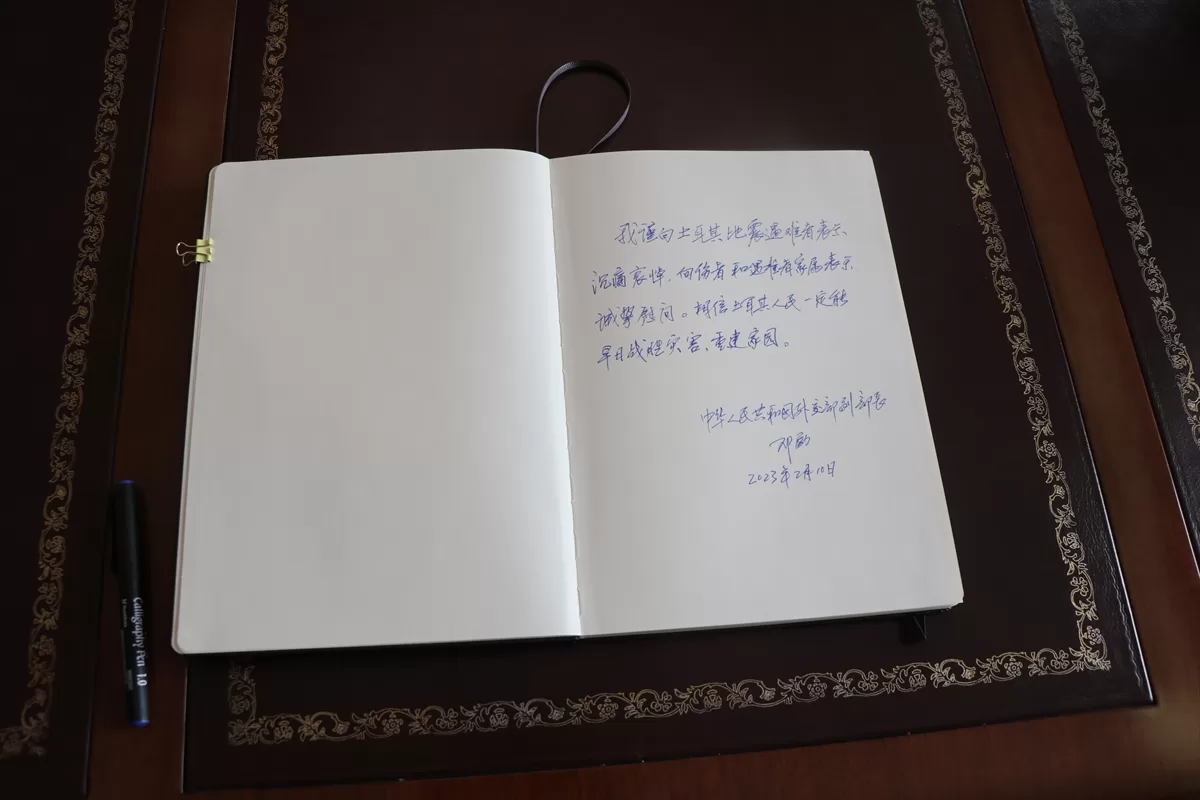 我谨向土耳其地震遇难者表示
沉痛哀悼，向伤者和遇难者家属表示
诚挚慰问。相信土耳其人民一定能
早日战胜灾害、重建家园。
中华人民共和国外交部副部长
邓励
2023年2月10日
Calligraphy Pen 1.0